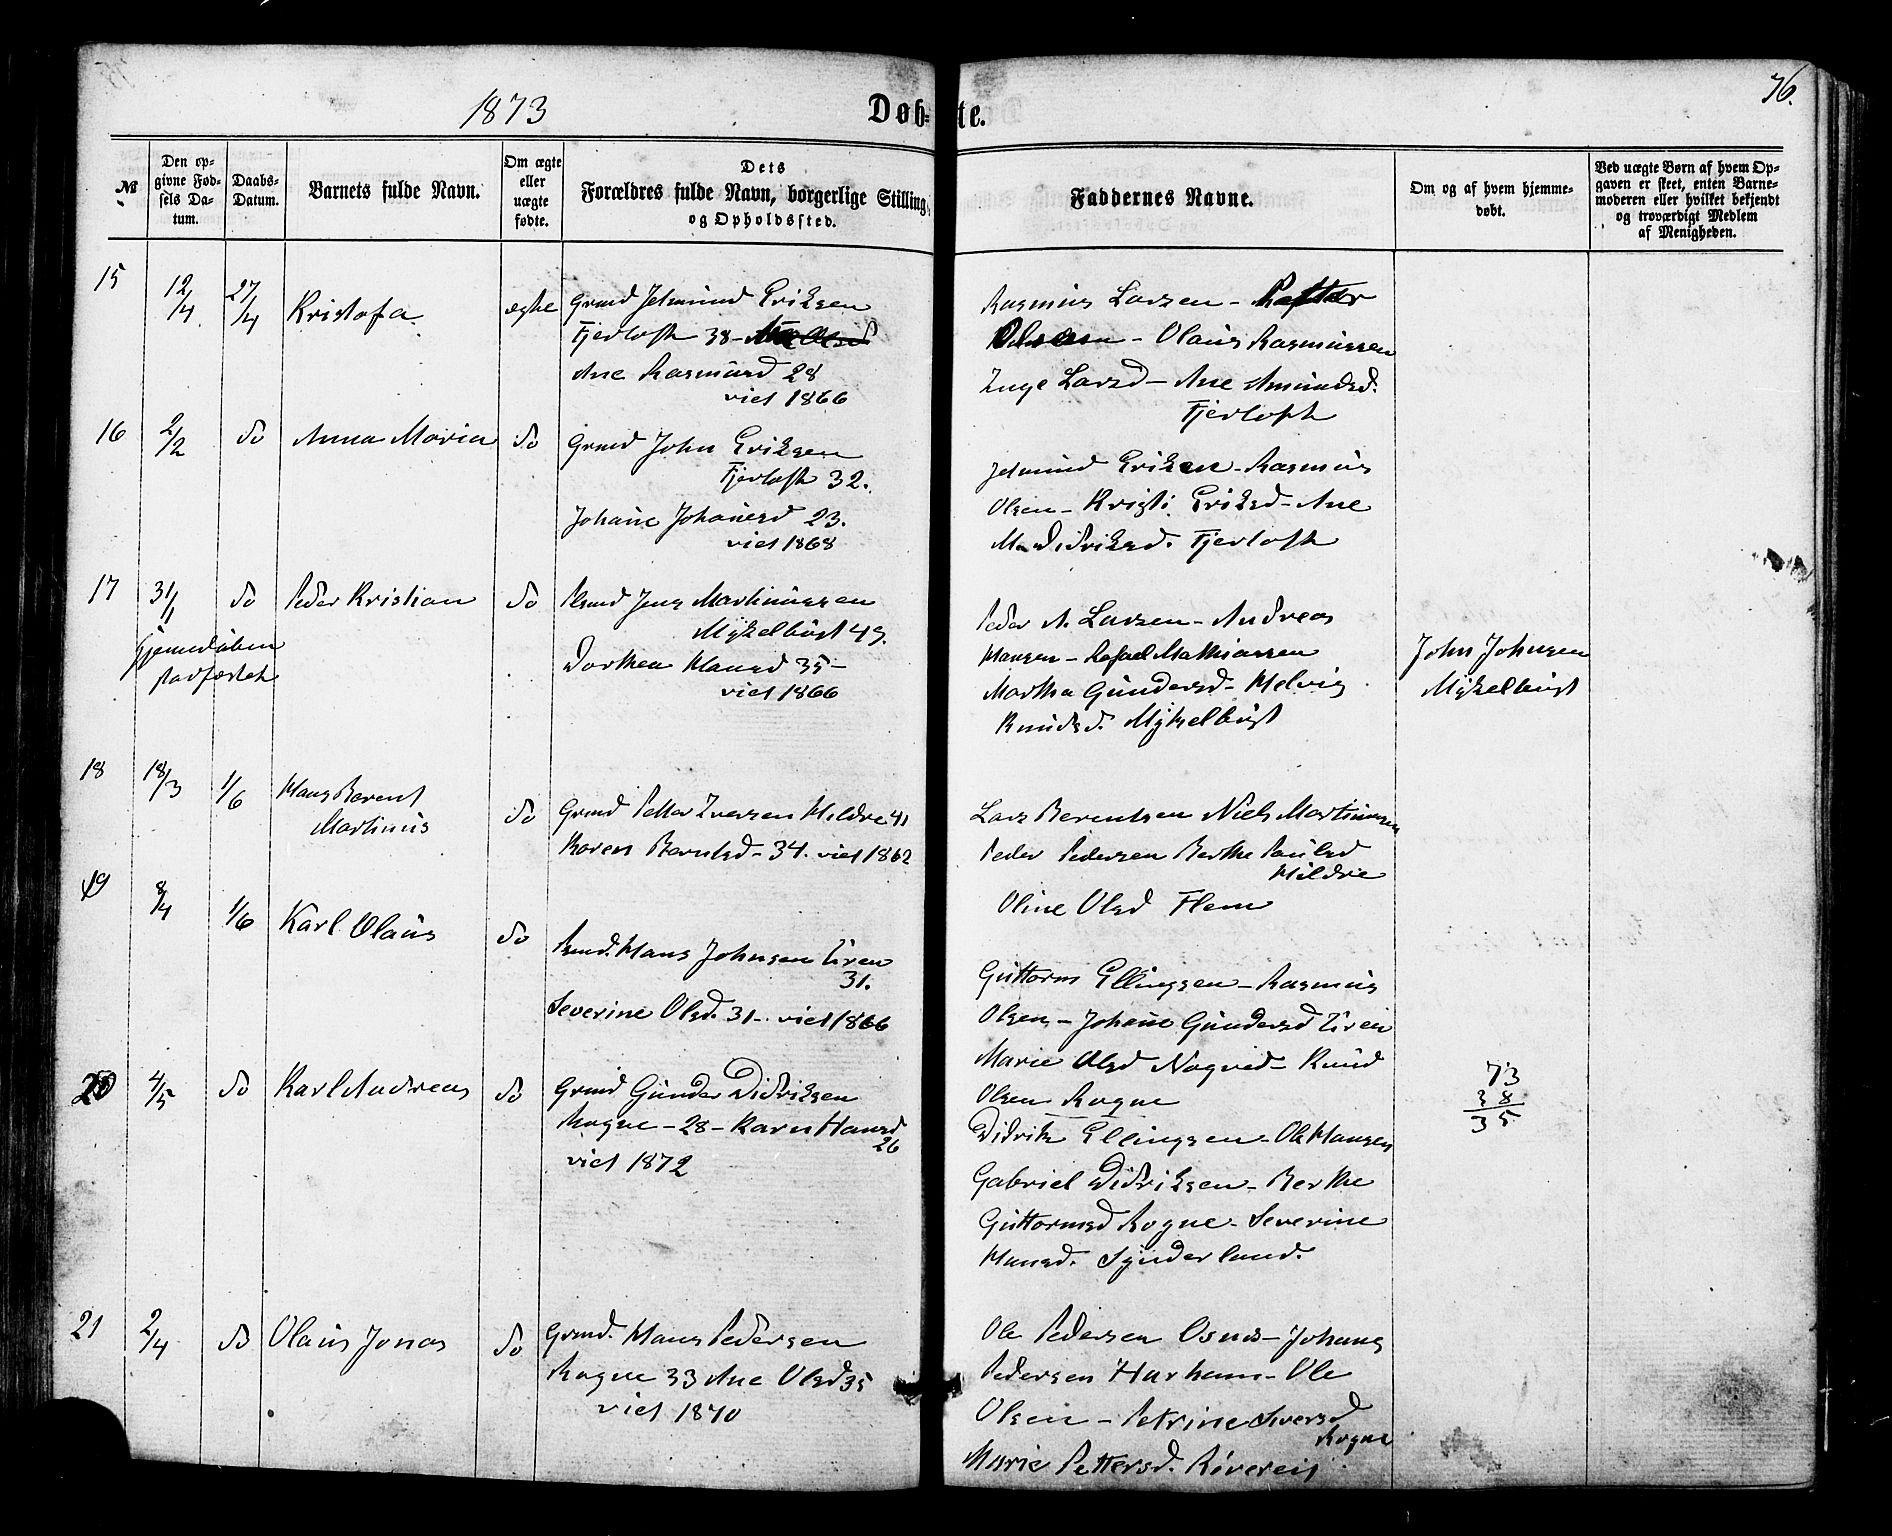 1873
Døb-te.
76.
№
Den op-
givne Fød-
sels Da-
tum.
Daabs-
Datum.
Barnets fulde Navn.
Om ægte
eller
uægte
fødte.
Dets
Forældres fulde Navn, borgerlige Stilling,
og Opholdssted.
Faddernes Navne.
Om og af hvem hjemme-
døbt.
Ved uægte Børn af hvem Op-
gaven er skeet, enten Barne-
moderen eller hvilket bekjendt
og troværdigt Medlem
af Menigheden.
15
12/4
27/4
Kristofa
ægte
Grmd Jetmund Eriksen
Fjertoft 38-
Ane Rasmusd 28
viet 1866
Rasmus Larsen -
- Olaus Rasmussen
Inge Larsd - Ane Amundsd.
Fjertoft
16
2/2
do
Anna Maria
do
Grmd John Eriksen
Fjertoft 32.
Johane Johansd 23.
viet 1868
Jetmund Eriksen - Rasmus
Olsen - Kristi Eriksd - Ane
M. Didriksd. Fjertoft
17
31/1
do
Peder Kristian
Hjemmedøben
stadfæstet
do
Jens Martinussen
Myklebust 49.
Dorthea Hansd 35 -
viet 1866
Peder A. Larsen - Andreas
Hansen - Rafael Mathiassen
Martha Gundersd - Helvig
Knudsd. Myklebust
John Johnsen
Myklebust
18
18/3
1/6
Hans Berent
Martinus
do
Grmd Petter Iversen Hildre 41
Karen Berntsd - 34. viet 1862
Lars Berentsen Niels Martinussen
Peder Pedersen Berthe Paulsd
Hildre
Oline Olsd Flem
19
8/4
1/6
Karl Olaus
do
Hans Johnsen Uren
31.
Severine Olsd. 31 - viet 1866
Guttorm Ellingsen - Rasmus
Olsen - Johane Gundersd Uren
Marie Olsd Nogved - Knud
Olsen Rogne
20
4/5
do
Karl Andreas
do
Grmd Gunder Didriksen
Rogne - 28 - Karn Hansd
26
viet 1872
Didrik Ellingsen - Ole Hansen
Gabriel Didriksen - Berthe
Guttormsd Rogne - Severine
Hansd. Synderland.
73
38
35
21
2/4
do
Olaus Jonas
do
Grmd. Hans Pedersen
Rogne 33 Ane Olsd 35
viet 1870
Ole Pedersen Osnes - Johans
Pedersen Harham - Ole
Olsen - Petrine Iversd
Rogne
Marie Pettersd.